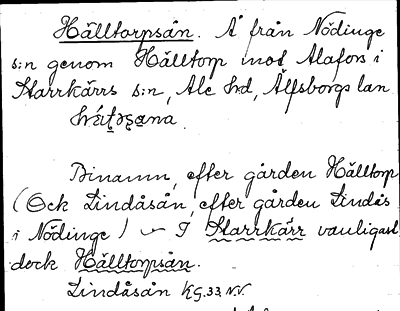 Hålltorpsån. Å från Nödinge
s:n genom Hålltorp mot Alafors i
Starrkärrs s:n, Ale hd, Älfsborgs län
Binamn, efter gården Hålltorp
(Ock Lindåsån, efter gården Lindås
i Nödinge) — I Starrkärr vanligast
dock Hålltorpsån.
Lindåsån KG. 33. N.V.